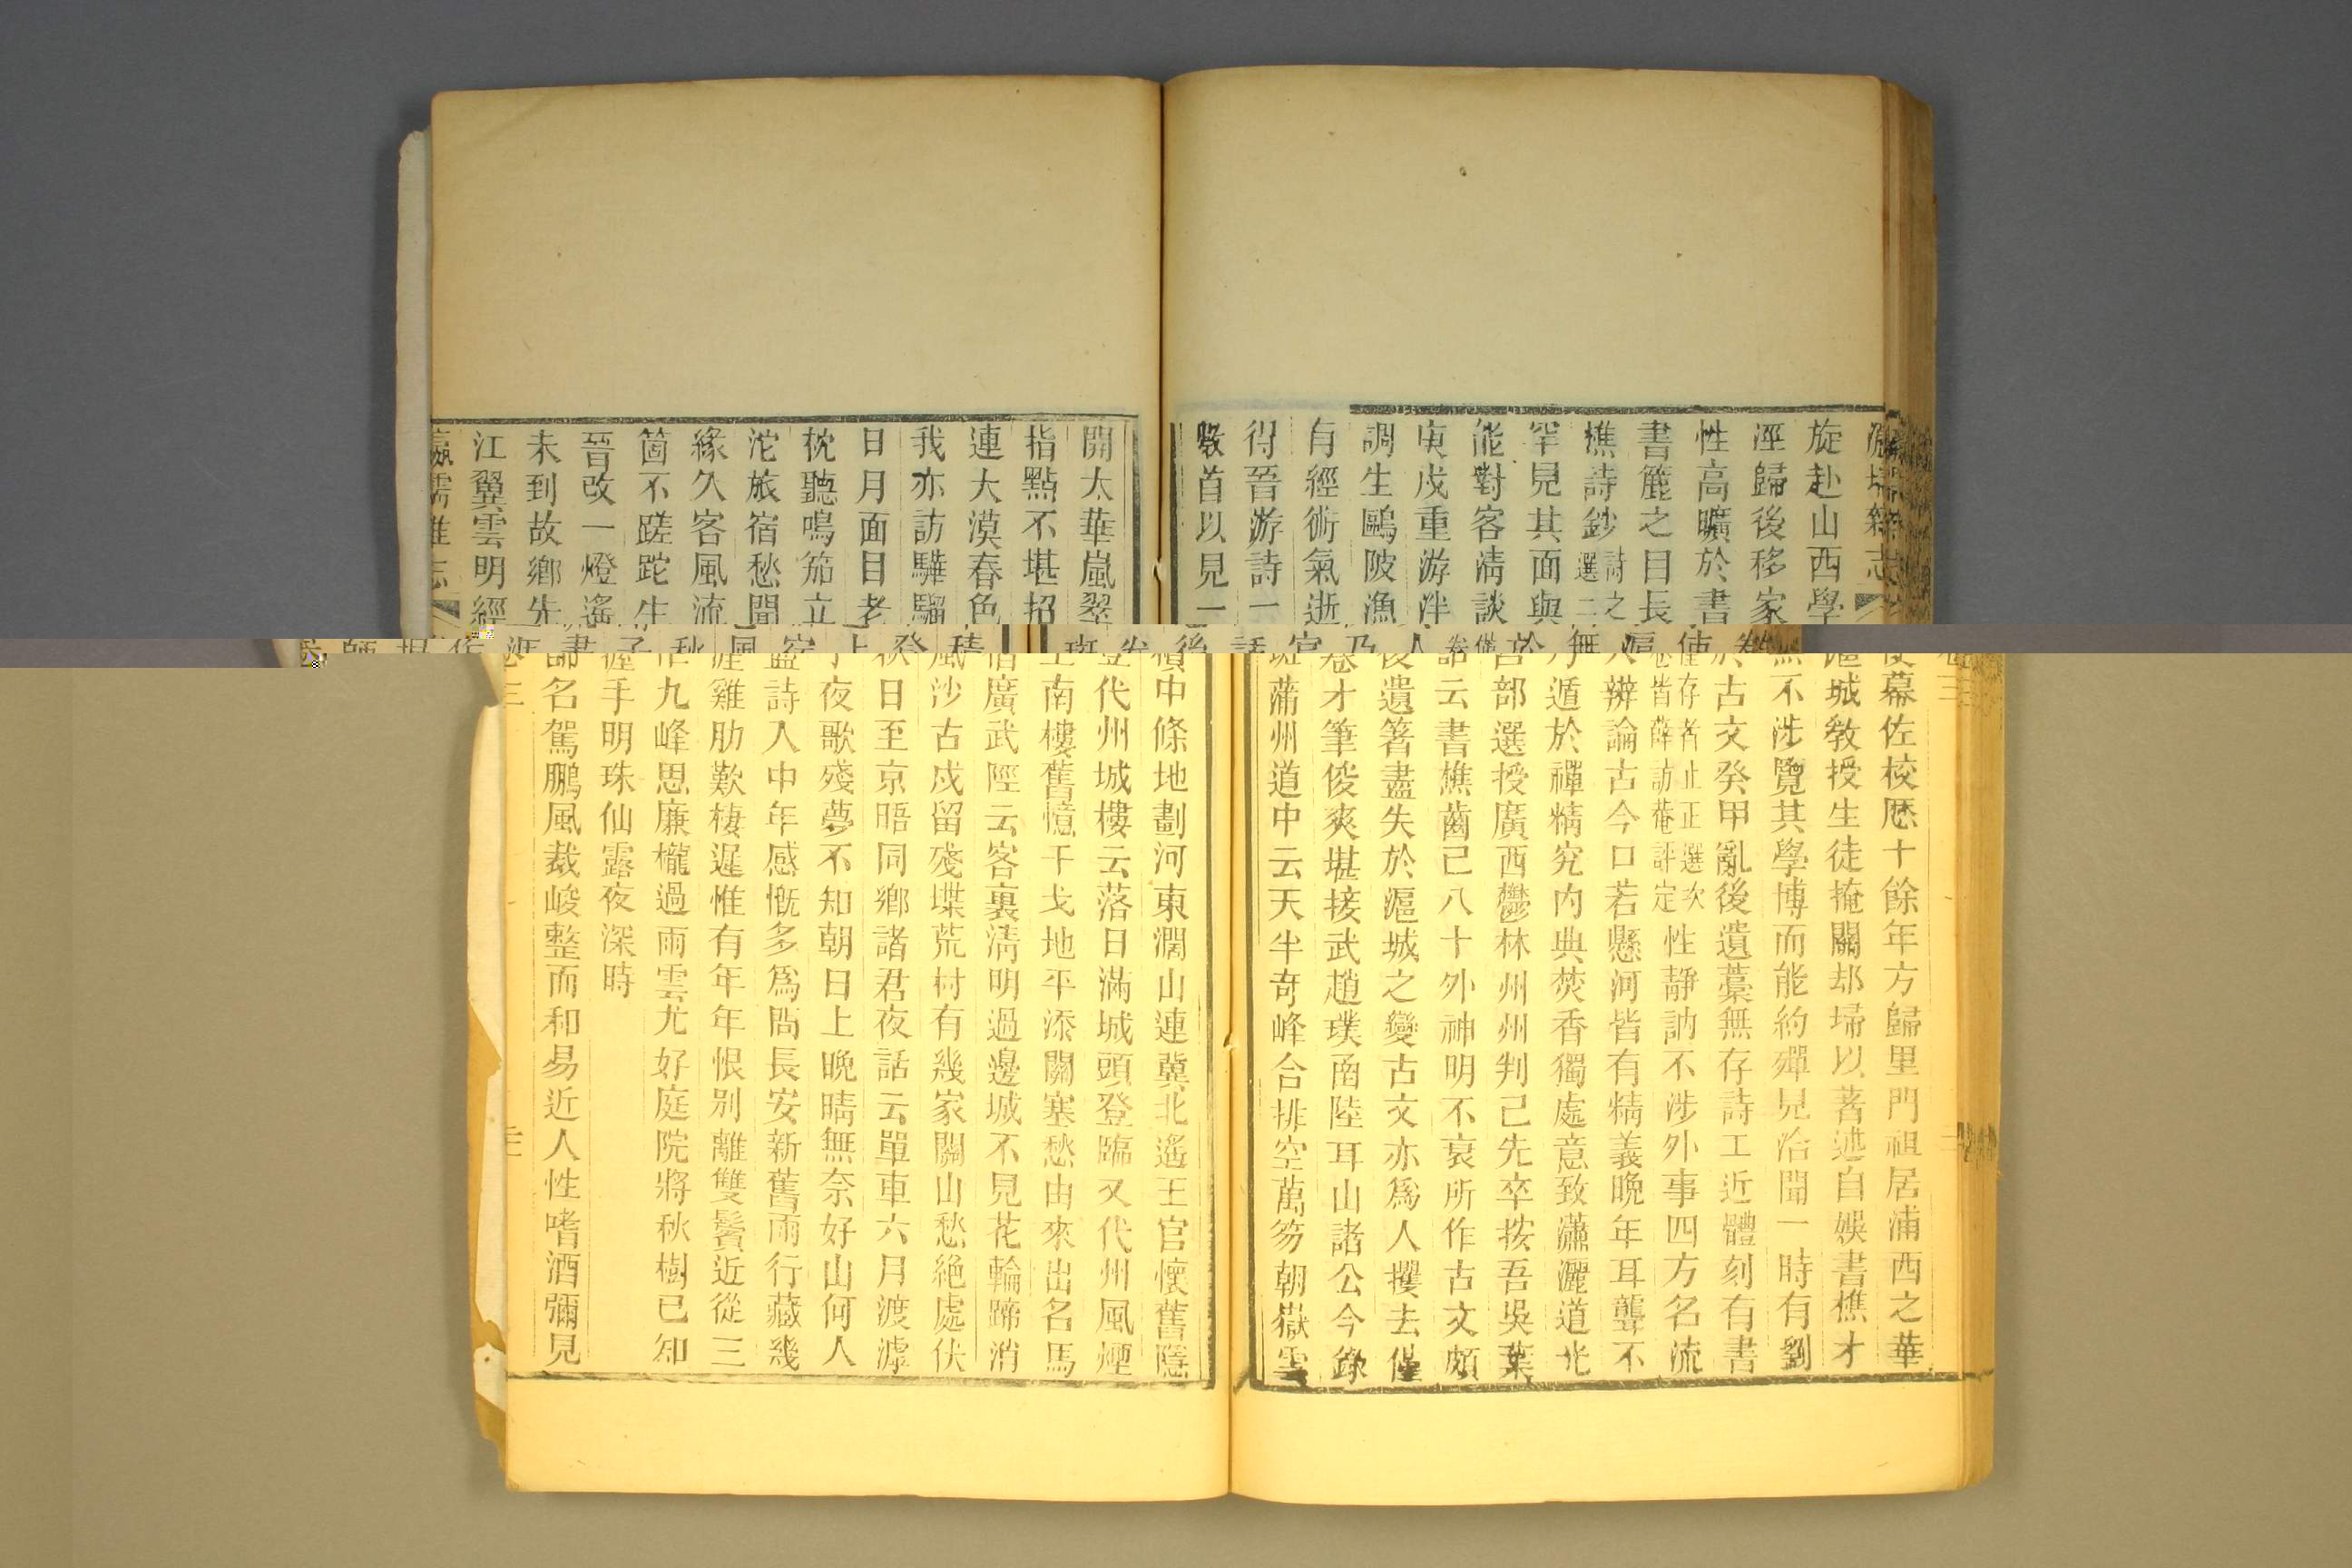 瀛壖雜志 卷三
旋赴山西學使幕佐校厯十餘年方歸里門祖居浦西之華
涇歸後移家滬城敎授生徒掩關却埽以著述自娛書樵才
性高曠於書無不涉覽其學博而能約殫見洽聞一時有劉
書簏之目長於古文癸甲亂後遺藁無存詩工近體刻有書
樵詩鈔詩之僅存者止正選次選二卷皆薛訪菴評定性靜訥不涉外事四方名流
罕見其面與人辨論古今口若懸河皆有精義晚年耳聾不
能對客清談乃遁於禪精究內典焚香獨處意致瀟灑道光
庚戌重游泮宮部選授廣西鬱林州州判已先卒按吾吳葉
調生鷗陂漁話云書樵齒已八十外神明不衰所作古文頗
有經術氣逝後遺箸盡失於滬城之變古文亦爲人攫去僅
得晉游詩一卷才筆俊爽堪接武趙璞函陸耳山諸公今錄
數首以見一斑蒲州道中云天半奇峰合排空萬笏朝嶽雲
開太華嵐翠積中條地劃河東濶山連冀北遙王官懷舊隱
指點不堪招登代州城樓云落日滿城頭登臨又代州風煙
連大漠春色上南樓舊憶干戈地平添關塞愁由來出名馬
我亦訪驊騮宿廣武陘云客裏淸明過邊城不見花輪蹄消
日月面目老風沙古戍留殘堞荒村有幾家關山愁絕處伏
枕聽鳴笳立秋日至京晤同鄉諸君夜話云單車六月渡滹
沱旅宿愁聞子夜歌殘夢不知朝日上晩晴無奈好山何人
緣久客風流盡詩入中年感慨多爲問長安新舊雨行藏幾
箇不蹉跎生涯雞肋歎棲遲惟有年年恨別離雙鬢近從三
晉改一燈遙惜九峰思廉櫳過雨雲尤好庭院將秋樹已知
未到故鄉先握手明珠仙露夜深時
江翼雲明經師名駕鵬風裁峻整而和易近人性嗜酒彌見
瀛壖雜志 卷三